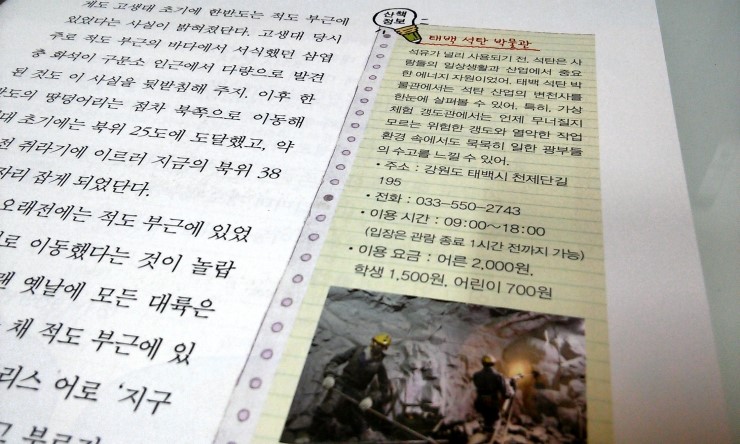 게도 고생대 초기에 한반도는 적도 부근에
있었다는 사실이 밝혀졌단다. 고생대 당시
주로 적도 부근의 바다에서 서식했던 삼엽
충 화석이 구문소 인근에서 다량으로 발견
된 것도 이 사실을 뒷받침해 주지. 이후 한
반도의 땅덩어리는 점차 북쪽으로 이동해
초기에는 북위 25도에 도달했고, 약
전 쥐라기에 이르러 지금의 북위 38
자리 잡게 되었단다.
오래전에는 적도 부근에 있었
로 이동했다는 것이 놀랍
옛날에 모든 대륙은
채 적도 부근에 있
리스 어로 ‘지구
산책
정보
태백 석탄 박물관
석유가 널리 사용되기 전, 석탄은 사
람들의 일상생활과 산업에서 중요
한 에너지 자원이었어. 태백 석탄 박
물관에서는 석탄 산업의 변천사를
한눈에 살펴볼 수 있어. 특히, 가상
체험 갱도관에서는 언제 무너질지
모르는 위험한 갱도와 열악한 작업
환경 속에서도 묵묵히 일한 광부들
의 수고를 느낄 수 있어.
• 주소 : 강원도 태백시 천제단길
195
• 전화 : 033-550-2743
• 이용 시간 : 09:00~18:00
(입장은 관람 종료 1시간 전까지 가능)
• 이용 요금 : 어른 2,000원,
학생 1,500원, 어린이 700원